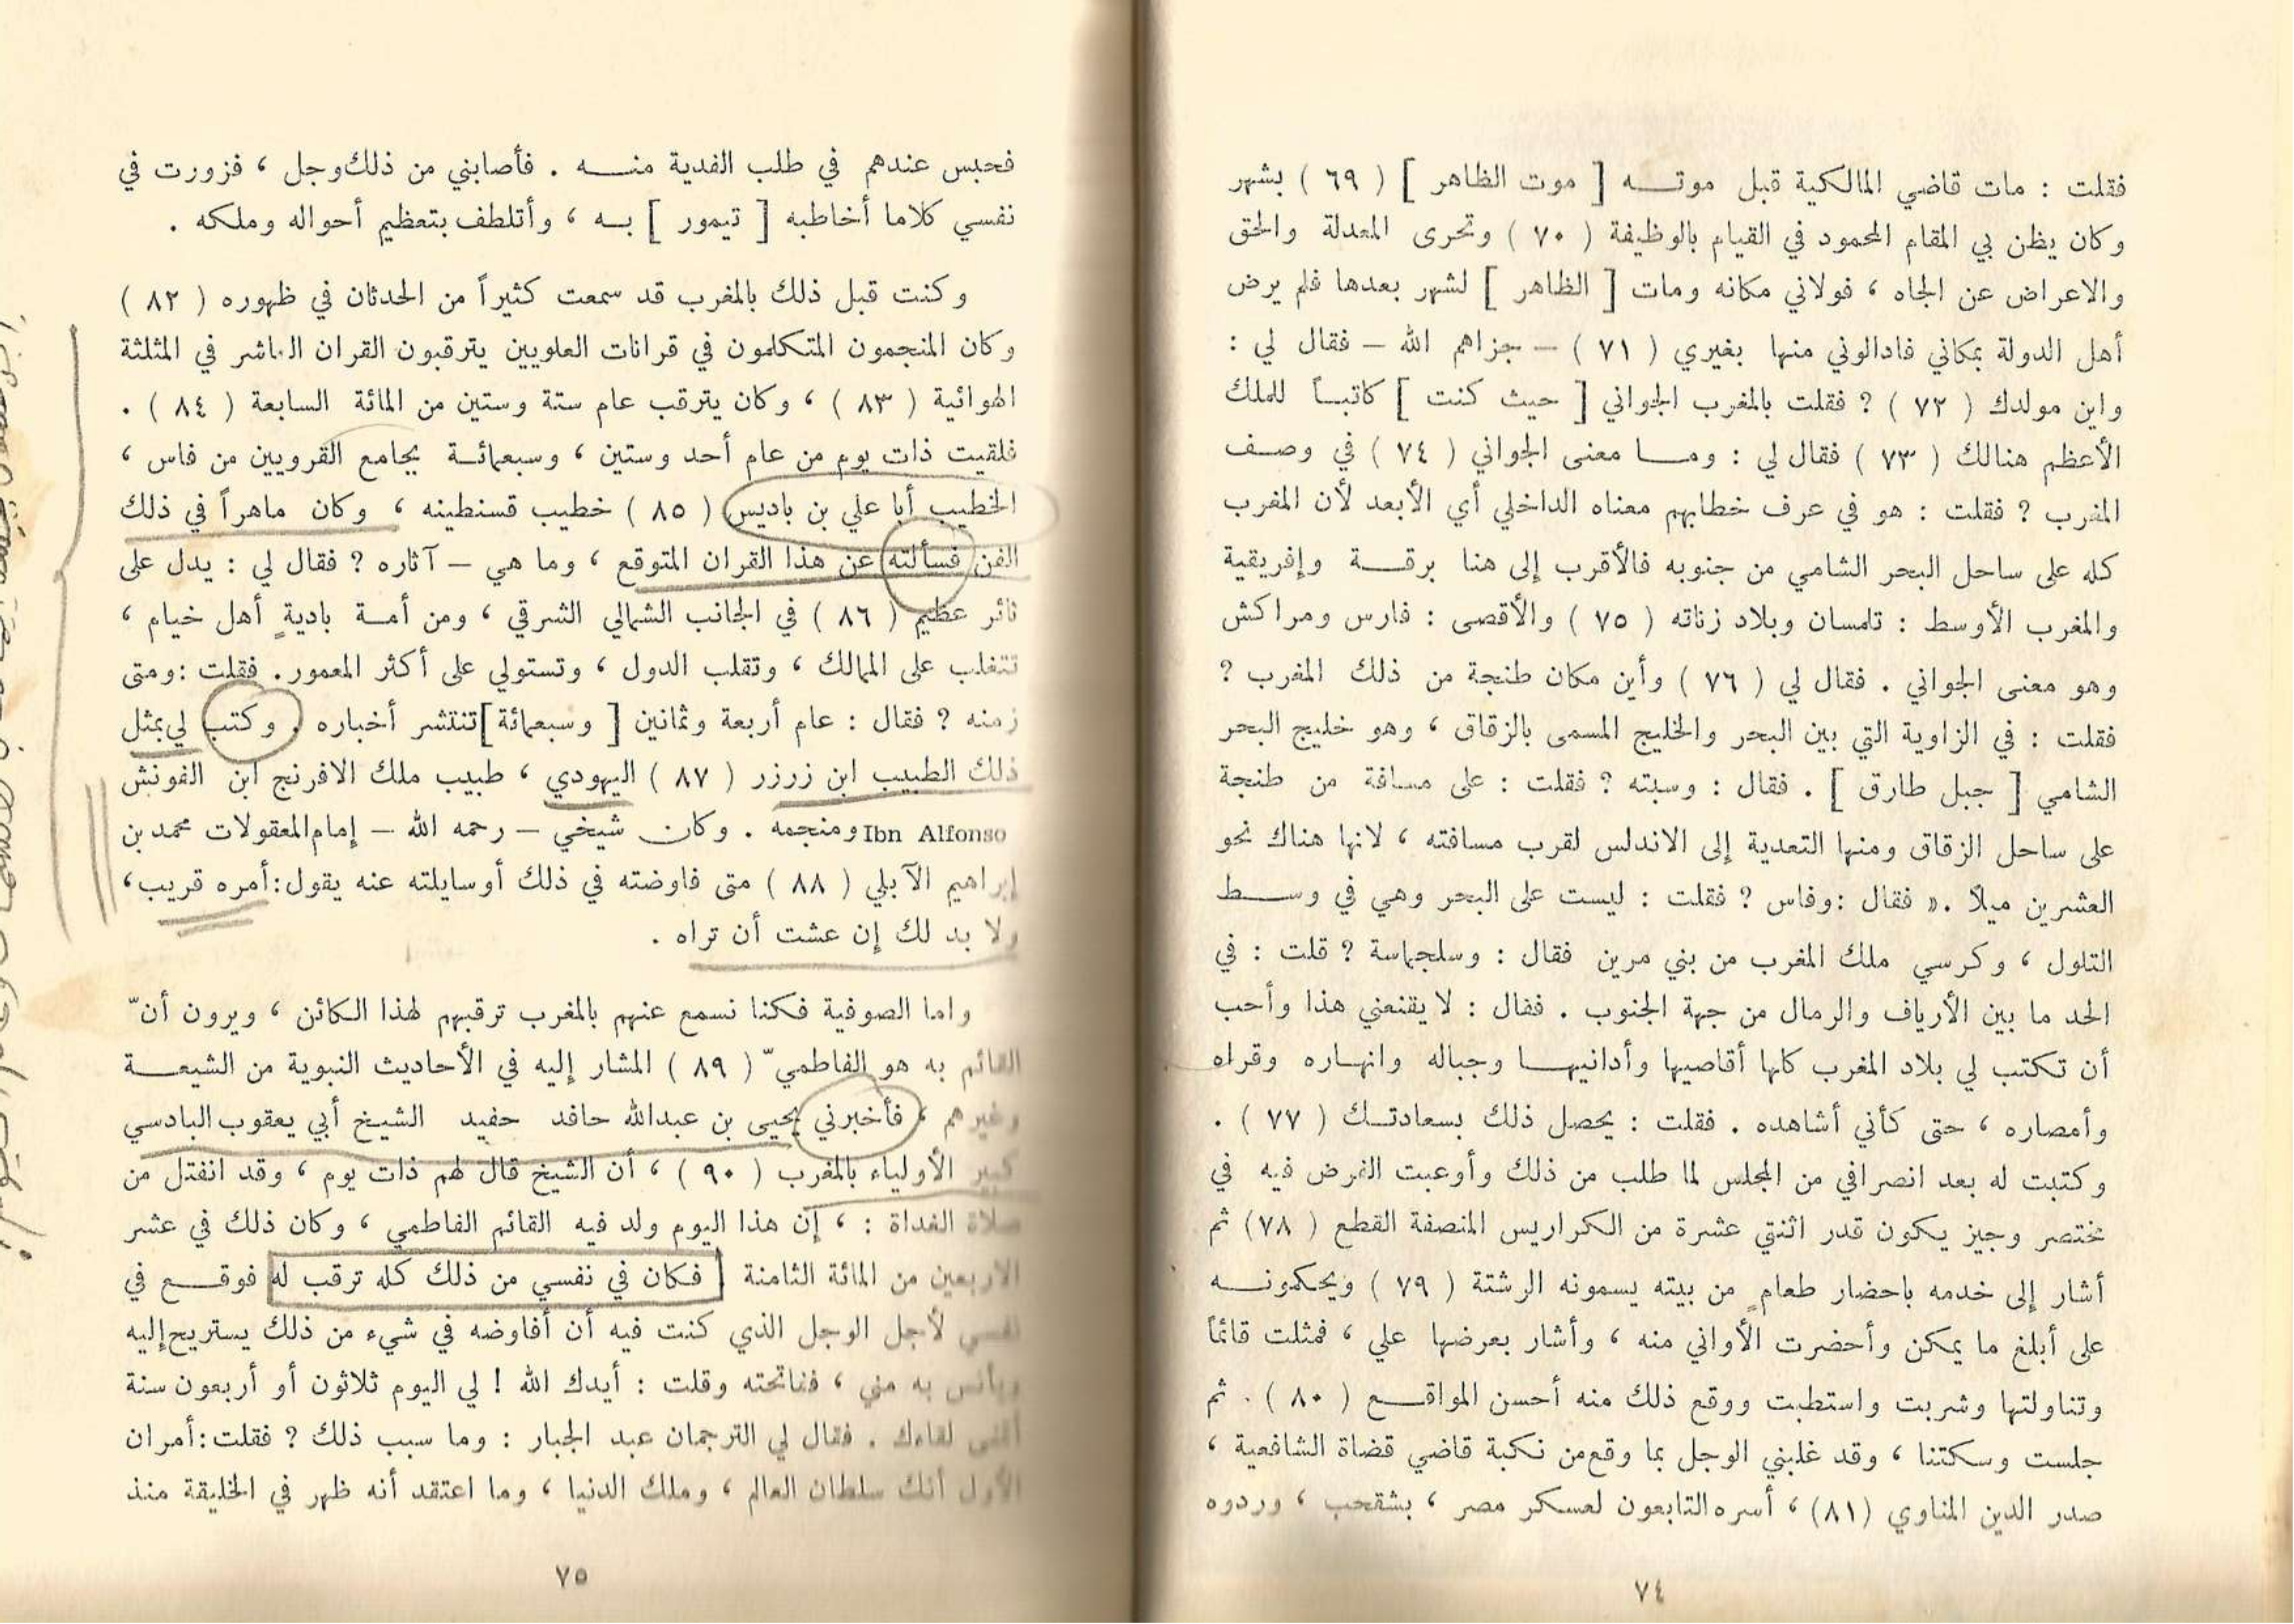 فقلت : مات قاضي المالكية قبل موتـــه [ موت الظاهر ] ( ٦٩ ) بشهر
وكان يظن بي المقام المحمود في القيام بالوظيفة ( ٧٠ ) وتحرى المعدلة والحق
والاعراض عن الجاه ، فولاني مكانه ومات [ الظاهر ] لشهر بعدها فلم يرض
أهل الدولة بمكاني فادالوني منها بغيري ( ٧١ ) — جزاهم الله — فقال لي :
واين مولدك ( ٧٢ ) ? فقلت بالمغرب الجواني [ حيث كنت ] كاتبـاً للملك
الأعظم هنالك ( ٧٣ ) فقال لي : ومـا معنى الجواني ( ٧٤ ) في وصـف
المغرب ? فقلت : هو في عرف خطابهم معناه الداخلي أي الأبعد لأن المغرب
كله على ساحل البحر الشامي من جنوبه فالأقرب إلى هنا برقـــة وإفريقية
والمغرب الأوسط : تلمسان وبلاد زناته ( ٧٥ ) والأقصى : فارس ومراكش
وهو معنى الجواني . فقال لي ( ٧٦ ) وأين مكان طنجة من ذلك المغرب ?
فقلت : في الزاوية التي بين البحر والخليج المسمى بالزقاق ، وهو خليج البحر
الشامي [ جبل طارق ] . فقال : وسبته ? فقلت : على مسافة من طنجة
على ساحل الزقاق ومنها التعدية إلى الاندلس لقرب مسافته ، لانها هناك نحو
العشرين ميلاً .« فقال :وفاس ? فقلت : ليست على البحر وهي في وســط
التلول ، وكرسي ملك المغرب من بني مرين فقال : وسلجماسة ? قلت : في
الحد ما بين الأرياف والرمال من جهة الجنوب . فقال : لا يقنعني هذا وأحب
أن تكتب لي بلاد المغرب كلها أقاصيها وأدانيهـا وجباله وانهـاره وقراه
وأمصاره ، حتى كأني أشاهده . فقلت : يحصل ذلك بسعادتـك ( ٧٧ ) .
وكتبت له بعد انصرافي من المجلس لما طلب من ذلك وأوعبت الغرض فيه في
مختصر وجيز يكون قدر اثنتي عشرة من الكراريس المنصفة القطع ( ٧٨ ) ثم
أشار إلى خدمه باحضار طعامٍ من بيته يسمونه الرشتة ( ٧٩ ) ويحكمونـــه
على أبلغ ما يمكن وأحضرت الأواني منه ، وأشار بعرضها علي ، فمثلت قائماً
وتناولتها وشربت واستطبت ووقع ذلك منه أحسن المواقـــع ( ٨٠ ) . ثم
جلست وسكتنا ، وقد غلبني الوجل بما وقع من نكبة قاضي قضاة الشافعية ،
صدر الدين المناوي (٨١) ، أسره التابعون لعسكر مصر ، بشقحب ، وردوه
٧٤
فحبس عندهم في طلب الفدية منـــه . فأصابني من ذلك وجل ، فزورت في
نفسي كلاما أخاطبه [ تيمور ] بـه ، وأتلطف بتعظيم أحواله وملكه .
وكنت قبل ذلك بالمغرب قد سمعت كثيراً من الحدثان في ظهوره ( ٨٢ )
وكان المنجمون المتكلمون في قرانات العلويين يترقبون القران العاشر في المثلثة
الهوائية ( ٨٣ ) ، وكان يترقب عام ستة وستين من المائة السابعة ( ٨٤ ) .
فلقيت ذات يوم من عام أحد وستين ، وسبعمائـة بجامع القرويين من فاس ،
الخطيب أبا علي بن باديس ( ٨٥ ) خطيب قسنطينه ، وكان ماهراً في ذلك
الفن فسألته عن هذا القران المتوقع ، وما هي — آثاره ? فقال لي : يدل على
ثائر عظيم ( ٨٦ ) في الجانب الشمالي الشرقي ، ومن أمـة باديةٍ أهل خيام ،
تتغلب على الممالك ، وتقلب الدول ، وتستولي على أكثر المعمور. فقلت :ومتى
زمنه ? فقال : عام أربعة وثمانين [ وسبعمائة ] تنتشر أخباره . وكتب لي بمثل
ذلك الطبيب ابن زرزر ( ٨٧ ) اليهودي ، طبيب ملك الافرنج ابن الفونش
Ibn Alfonso ومنجمه . وكان شيخي — رحمه الله — إمام المعقولات محمد بن
إبراهيم الآبلي ( ٨٨ ) متى فاوضته في ذلك أو سايلته عنه يقول: أمره قريب،
ولا بد لك إن عشت أن تراه .
واما الصوفية فكنا نسمع عنهم بالمغرب ترقبهم لهذا الكائن ، ويرون أنّ
القائم به هو الفاطميّ ( ٨٩ ) المشار إليه في الأحاديث النبوية من الشيعـــة
وغيرهم ، فأخبرني يحيى بن عبدالله حافد حفيد الشيخ أبي يعقوب البادسي
كبير الأولياء بالمغرب ( ٩٠ ) ، أن الشيخ قال لهم ذات يوم ، وقد انفتل من
صلاة الغداة : ، إن هذا اليوم ولد فيه القائم الفاطمي ، وكان ذلك في عشر
الاربعين من المائة الثامنة فكان في نفسي من ذلك كله ترقب له فوقـــع في
نفسي لأجل الوجل الذي كنت فيه أن أفاوضه في شيء من ذلك يستريح إليه
ويأنس به مني ، ففاتحته وقلت : أيدك الله ! لي اليوم ثلاثون أو أربعون سنة
أتمنى لقاءك . فقال لي الترجمان عبد الجبار : وما سبب ذلك ? فقلت: أمران
الأول أنك سلطان العالم ، وملك الدنيا ، وما اعتقد أنه ظهر في الخليقة منذ
٧٥